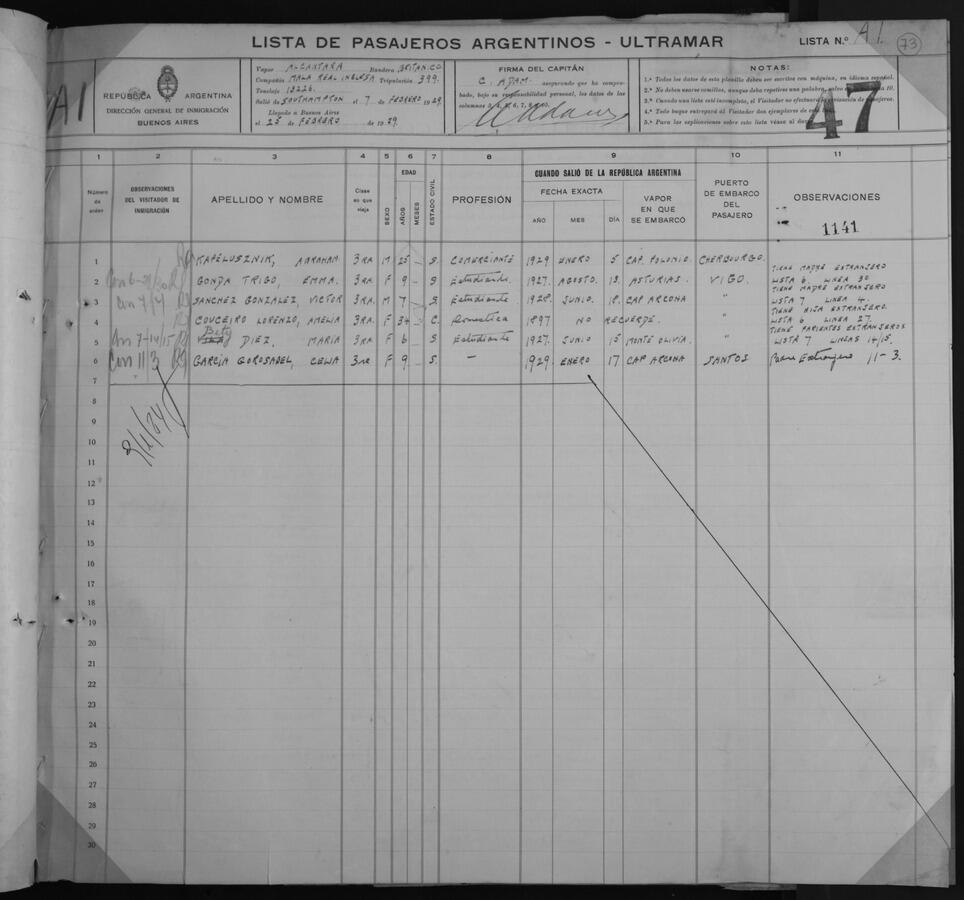 LISTA DE PASAJEROS ARGENTINOS - ULTRAMAR
LISTA N.º A1. 73
A1
REPÚBLICA ARGENTINA
DIRECCIÓN GENERAL DE INMIGRACIÓN
BUENOS AIRES
Vapor ALCANTARA Bandera BRITANICO
Compañía MALA REAL INGLESA Tripulación 399.
Tonelaje 13226.
Salió de SOUTHAMPTON el 7 de FEBRERO 1929
Llegado a Buenos Aires
el 25 de FEBRERO de 1929.
FIRMA DEL CAPITÁN
C. ADAM. asegurando que ha comprobado, bajo su responsabilidad personal, los datos de las
columnas
NOTAS:
1.ª Todos los datos de esta planilla deben ser escritos con máquina, en idioma español.
2.ª No deben usarse comillas, aunque deba repetirse una palabra,
3.ª Cuando una lista esté incompleta, el Visitador
4.ª Todo buque entregará al Visitador dos ejemplares de
5.ª Para las explicaciones sobre esta lista véase al
47
1 2 3 4 5 6 7 8 9 10 11
Número de orden
OBSERVACIONES DEL VISITADOR DE INMIGRACIÓN
APELLIDO Y NOMBRE
Clase en que viaja
SEXO
EDAD
AÑOS
MESES
ESTADO CIVIL
PROFESIÓN
CUANDO SALIÓ DE LA REPÚBLICA ARGENTINA
FECHA EXACTA
AÑO MES DÍA
VAPOR EN QUE SE EMBARCÓ
PUERTO DE EMBARCO DEL PASAJERO
OBSERVACIONES
1141
1 KAPELUSZNIK, ABRAHAM. 3RA M 25 - S. COMERCIANTE 1929 ENERO 5 CAP. POLONIO. CHERBOURGO.
TIENE MADRE EXTRANJERO
2 GONDA TRIGO, EMMA. 3RA. F 9 - S Estudiante. 1927. AGOSTO. 13. ASTURIAS. VIGO. LISTA 6. LINEA 30
TIENE MADRE EXTRANJERO
3 Con 7/4 SANCHEZ GONZALEZ, VICTOR 3RA. M 7 - S Estudiante 1928. JUNIO. 18. CAP ARCONA " LISTA 7 LINEA 4.
TIENE HIJA EXTRANJERO.
4 COUCEIRO LORENZO, AMELIA 3RA. F 34 - C. Domestica 1897 NO RECUERDE. " LISTA 6 LINEA 27.
Bety
TIENE PARIENTES EXTRANJEROS
5 Con 7-14/15 DIEZ, MARIA 3RA F 6 - S Estudiante 1927. JUNIO 15 MONTE OLIVIA. " LISTA 7 LINEAS 14/15.
6 Con 11/3 GARCÍA GOROSABEL, CELIA 3RA F 9. - S. - 1929. ENERO 17 CAP ARCONA SANTOS Padre Extranjero 11-3.
7
8
9
10
11
12
13
14
15
16
17
18
19
20
21
22
23
24
25
26
27
28
29
30